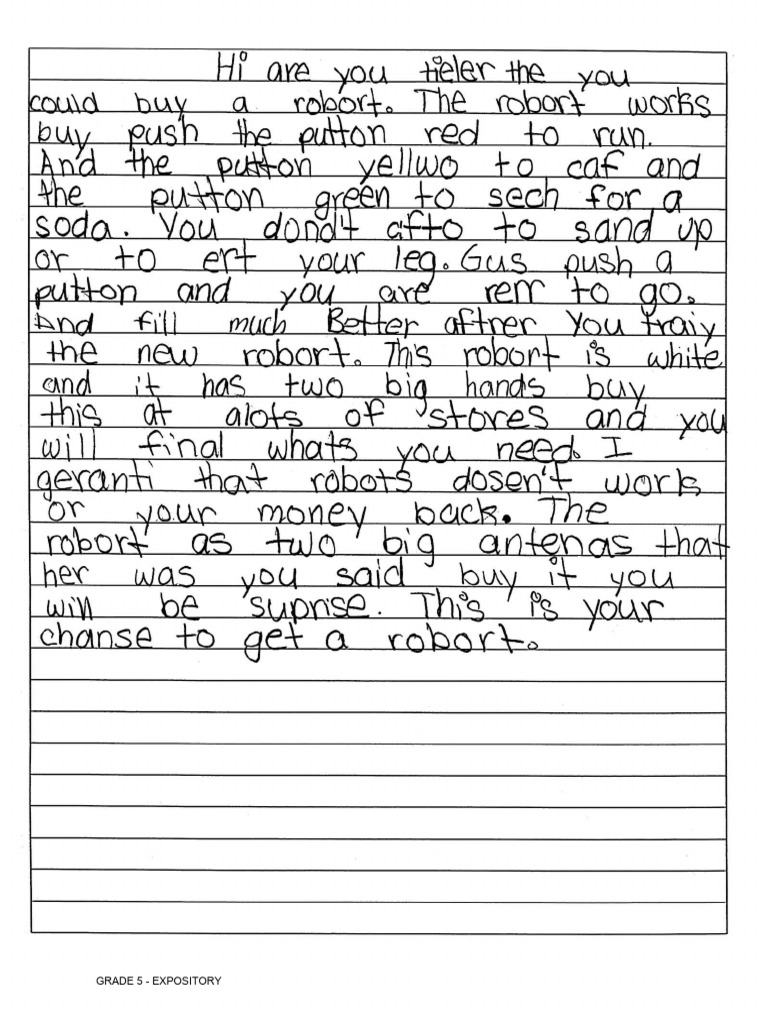 Hi are you tieler the you
could buy a robort. The robort works
buy push the putton red to run.
And the putton yellwo to caf and
the putton green to sech for a
soda. You dond't afto to sand up
or to ert your leg. Gus push a
putton and you are rerr to go.
And fill much Better aftrer You traiy
the new robort. This robort is white
and it has two big hands buy
this at alots of stores and you
will final whats you need. I
geranti that robots dosen't work
or your money back. The
robort as two big antenas that
her was you said buy it you
will be suprise. This is your
chanse to get a robort.
GRADE 5 - EXPOSITORY